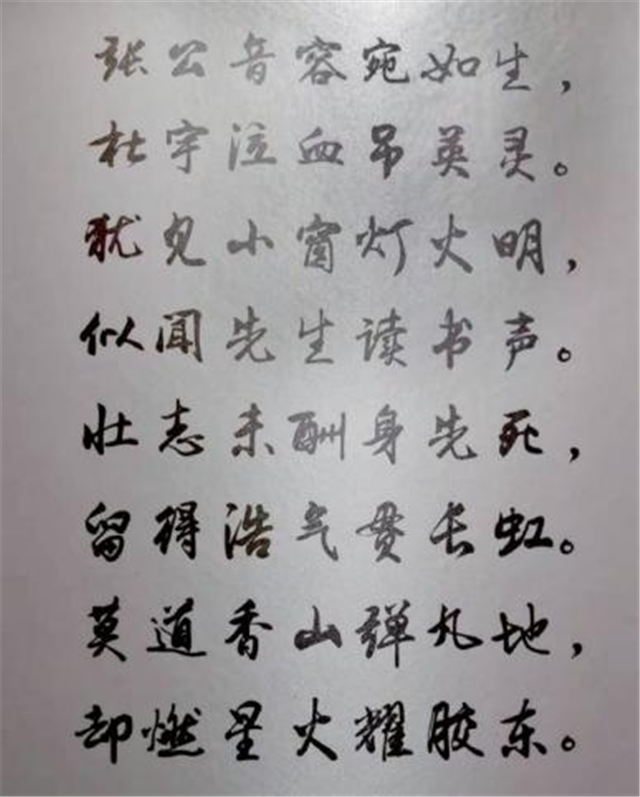 张公音容宛如生，
杜宇泣血吊英灵。
犹见小窗灯火明，
似闻先生读书声。
壮志未酬身先死，
留得浩气贯长虹。
莫道香山弹丸地，
却燃星火耀胶东。